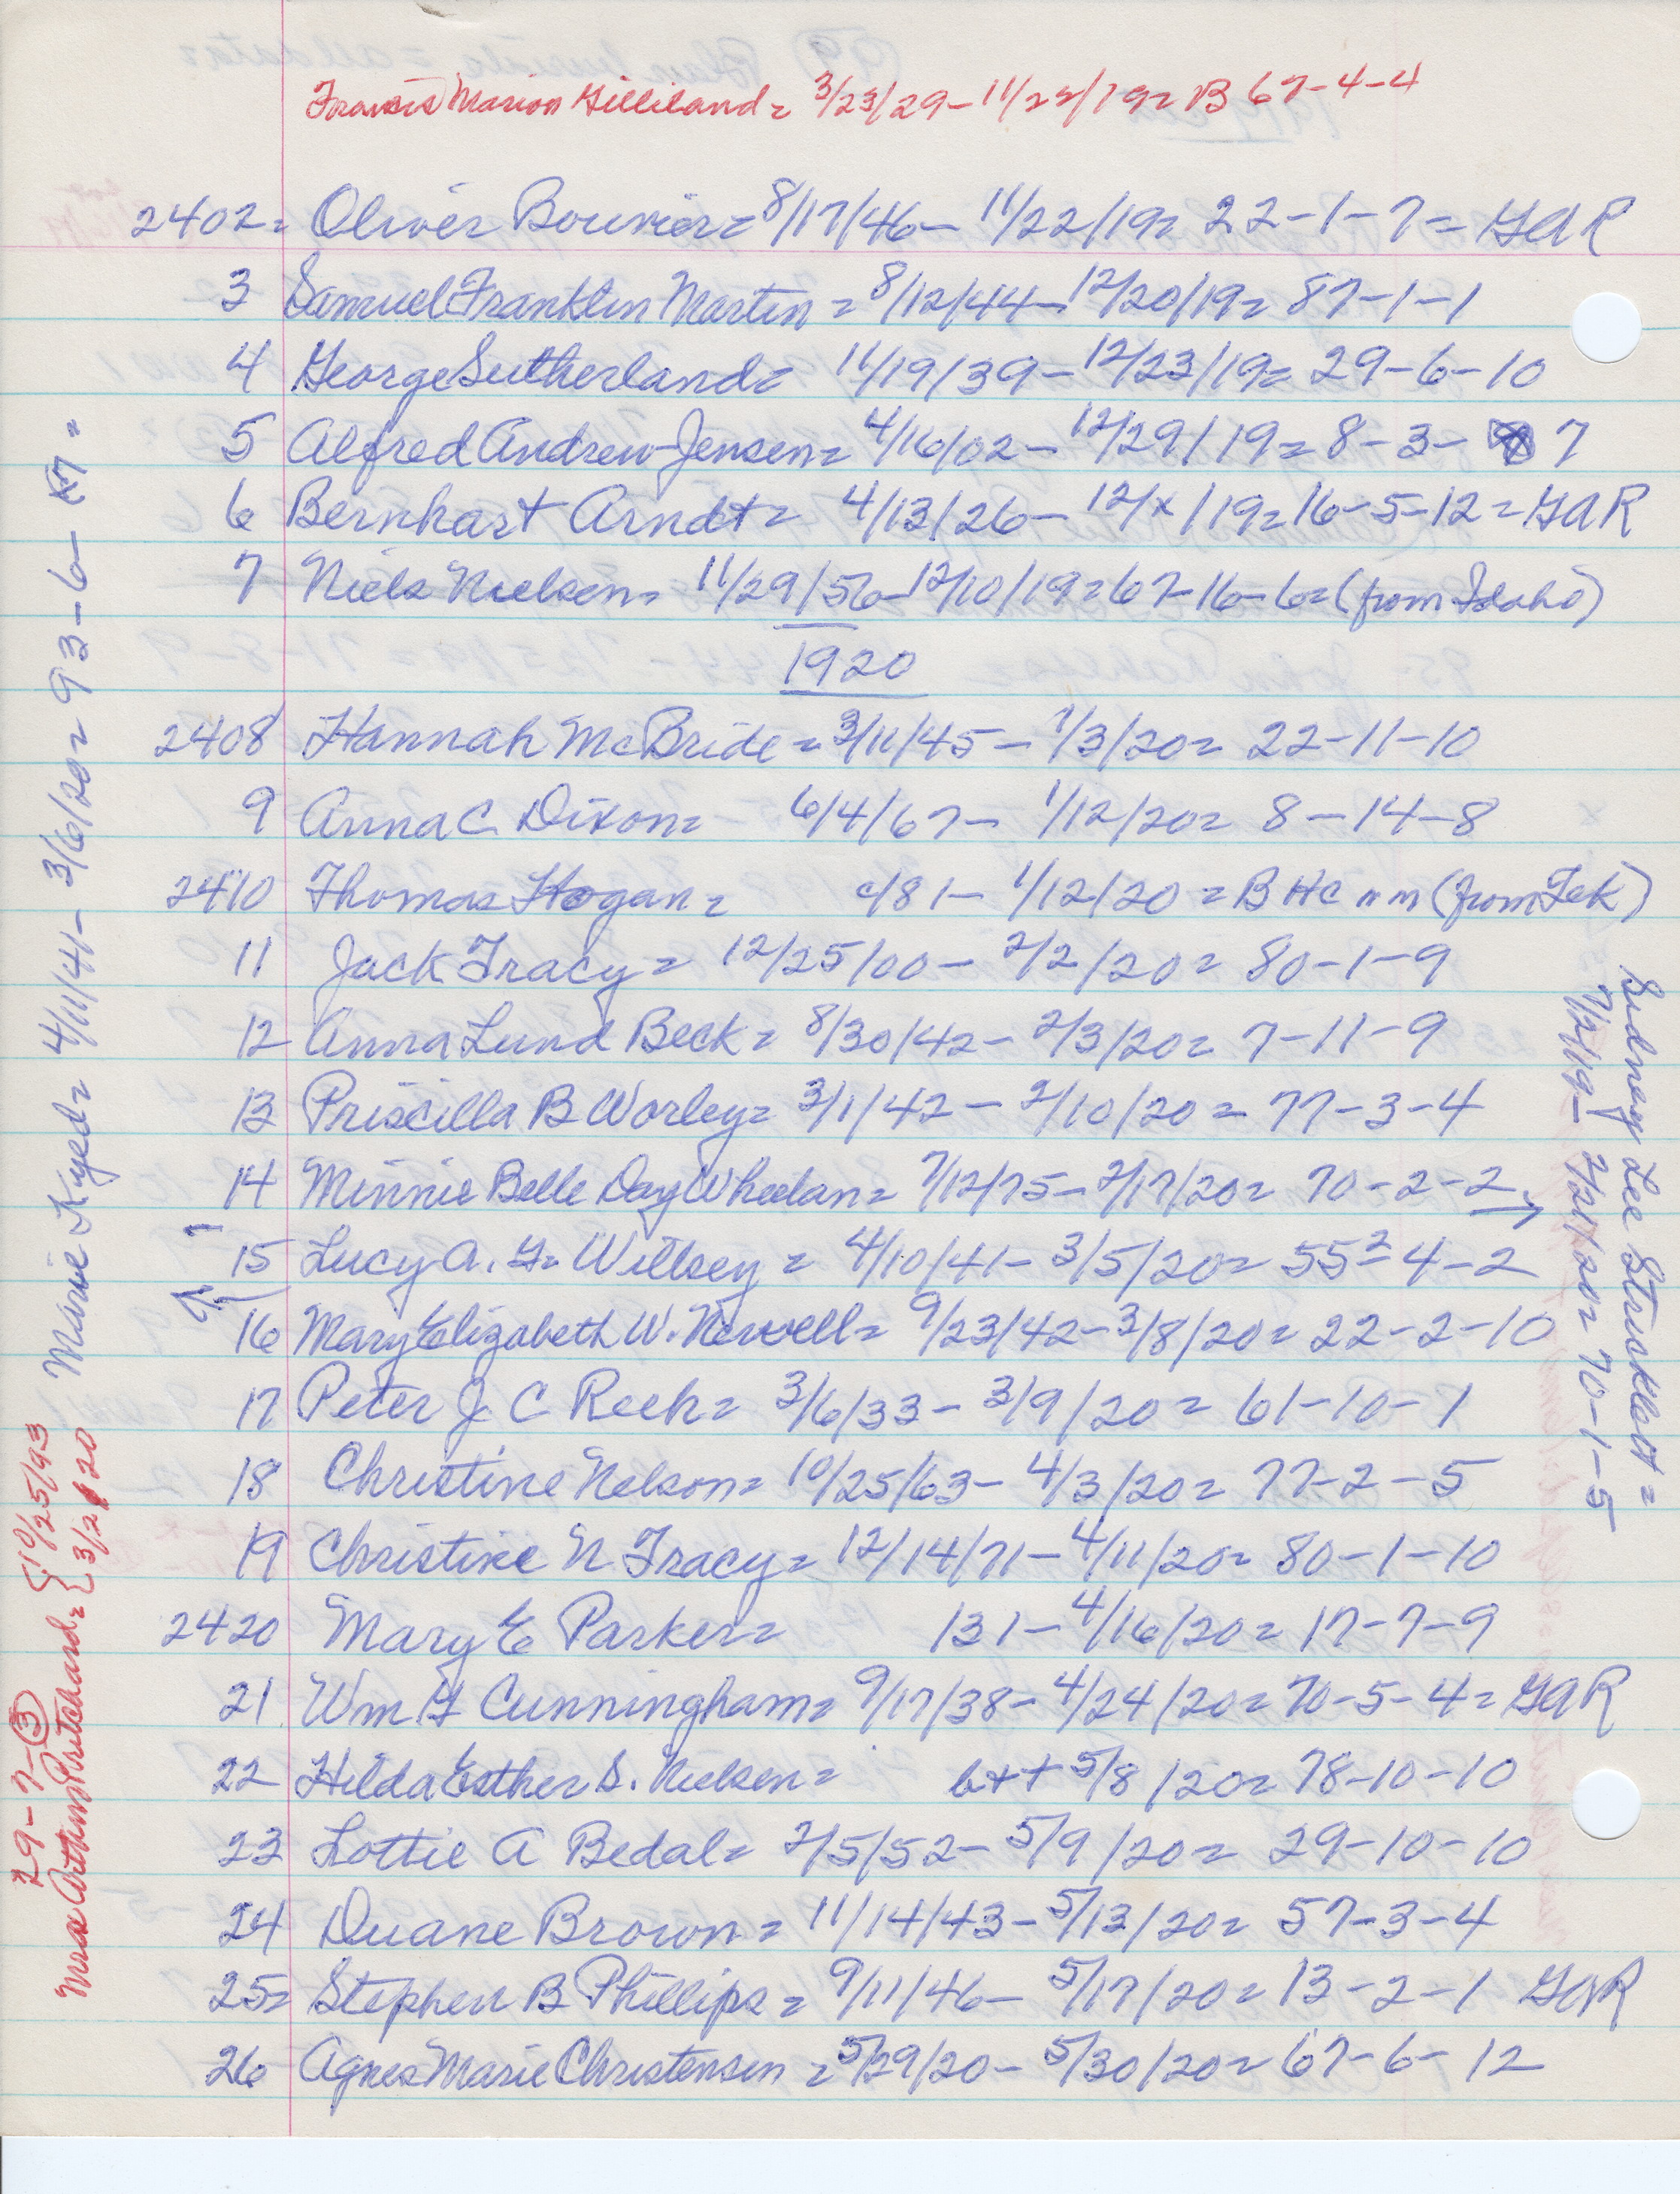 Francis Marion Gilliland = 3/23/29 - 11/22/19 = B 67-4-4
2402 = Oliver Bouvier = 8/17/46 - 11/22/19 = 22-1-7 = GAR
3 Samuel Franklin Martin = 8/12/44 - 12/20/19 = 87-1-1
4 George Sutherland = 11/19/39 - 12/23/19 = 29-6-10
5 Alfred Andrew Jensen = 4/16/02 - 12/29/19 = 8-3- 7
6 Bernhart Arndt = 4/13/26 - 12/x/19 = 16-5-12 = GAR
7 Niels Nielsen = 11/29/56 - 12/10/19 = 67-16-6 = (from Idaho)
1920
2408 Hannah McBride = 3/11/45 - 1/3/20 = 22-11-10
9 Anna C. Dixon = 6/4/67 - 1/12/20 = 8-14-8
2410 Thomas Hogan = c/81 - 1/12/20 = B HC nm (from Tek)
11 Jack Tracy = 12/25/00 - 2/2/20 = 80-1-9
12 Anna Lund Beck = 8/30/42 - 2/3/20 = 7-11-9
13 Priscilla B Worley = 3/1/42 - 2/10/20 = 77-3-4
14 Minnie Belle Day Wheelan = 7/12/75 - 2/17/20 = 70-2-2
15 Lucy A. G. Willsey = 4/10/41 - 3/5/20 = 55²-4-2
16 Mary Elizabeth W. Newell = 9/23/42 - 3/8/20 = 22-2-10
17 Peter J C Reek = 3/6/33 - 3/9/20 = 61-10-1
18 Christine Nelson = 10/25/63 - 4/3/20 = 77-2-5
19 Christine N Tracy = 12/14/71 - 4/11/20 = 80-1-10
2420 Mary E Parker = 131 - 4/16/20 = 17-7-9
21 Wm G Cunningham = 9/17/38 - 4/24/20 = 70-5-4 = GAR
22 Hilda Esther S. Nielsen = b++ 5/8/20 = 78-10-10
23 Lottie A Bedal = 2/5/52 - 5/9/20 = 29-10-10
24 Duane Brown = 11/14/43 - 5/13/20 = 57-3-4
25 = Stephen B Phillips = 9/11/46 - 5/17/20 = 13-2-1 GAR
26 Agnes Marie Christensen = 5/29/20 - 5/30/20 = 67-6-12
Marie Kyed = 4/11/41 - 3/6/20 = 93-6-
29-7-3
Mrs Arthur Pritchard = { 10/25/93
3/2/20
Sidney Lee Strucklett =
7/12/19 - 2/21/20 = 70-1-5